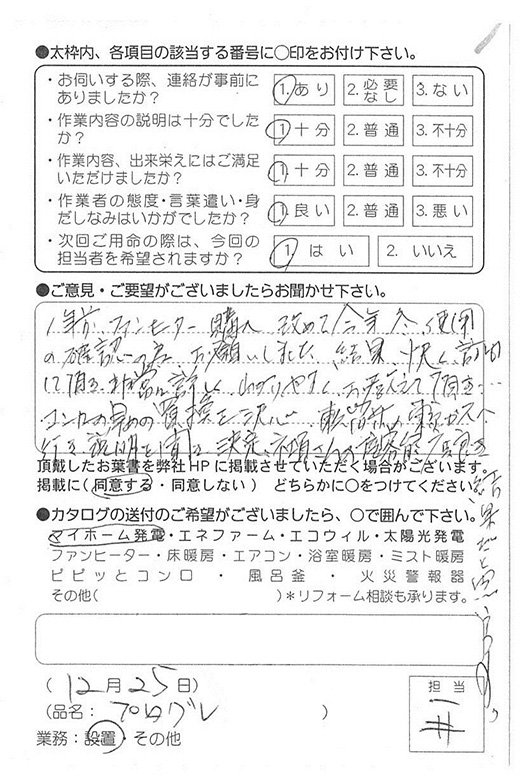 ●太枠内、各項目の該当する番号に○印をお付け下さい。
・お伺いする際、連絡が事前に
ありましたか?
1.あり 2.必要なし 3.ない
・作業内容の説明は十分でした
か?
1.十分 2.普通 3.不十分
・作業内容、出来栄えにはご満足
いただけましたか?
1.十分 2.普通 3.不十分
・作業者の態度・言葉遣い・身
だしなみはいかがでしたか?
1.良い 2.普通 3.悪い
・次回ご用命の際は、今回の
担当者を希望されますか?
1.はい 2.いいえ
●ご意見・ご要望がございましたらお聞かせ下さい。
1年前 ファンヒーター購入 改めて今年冬 使用
の確認の為 お願いしました 結果 快く
て頂き 非常に詳しく わかりやすく お教えて頂き
コンロの早めの買換を決心
説明を聞き 決定
頂戴したお葉書を弊社HPに掲載させていただく場合がございます。
掲載に(同意する・同意しない) どちらかに○をつけてください。
結果だと思います。
●カタログの送付のご希望がございましたら、○で囲んで下さい。
マイホーム発電・エネファーム・エコウィル・太陽光発電
ファンヒーター・床暖房・エアコン・浴室暖房・ミスト暖房
ピピッとコンロ・風呂釜・火災警報器
その他( )*リフォーム相談も承ります。
(12月25日)
(品名: プログレ )
業務:設置・その他
担当